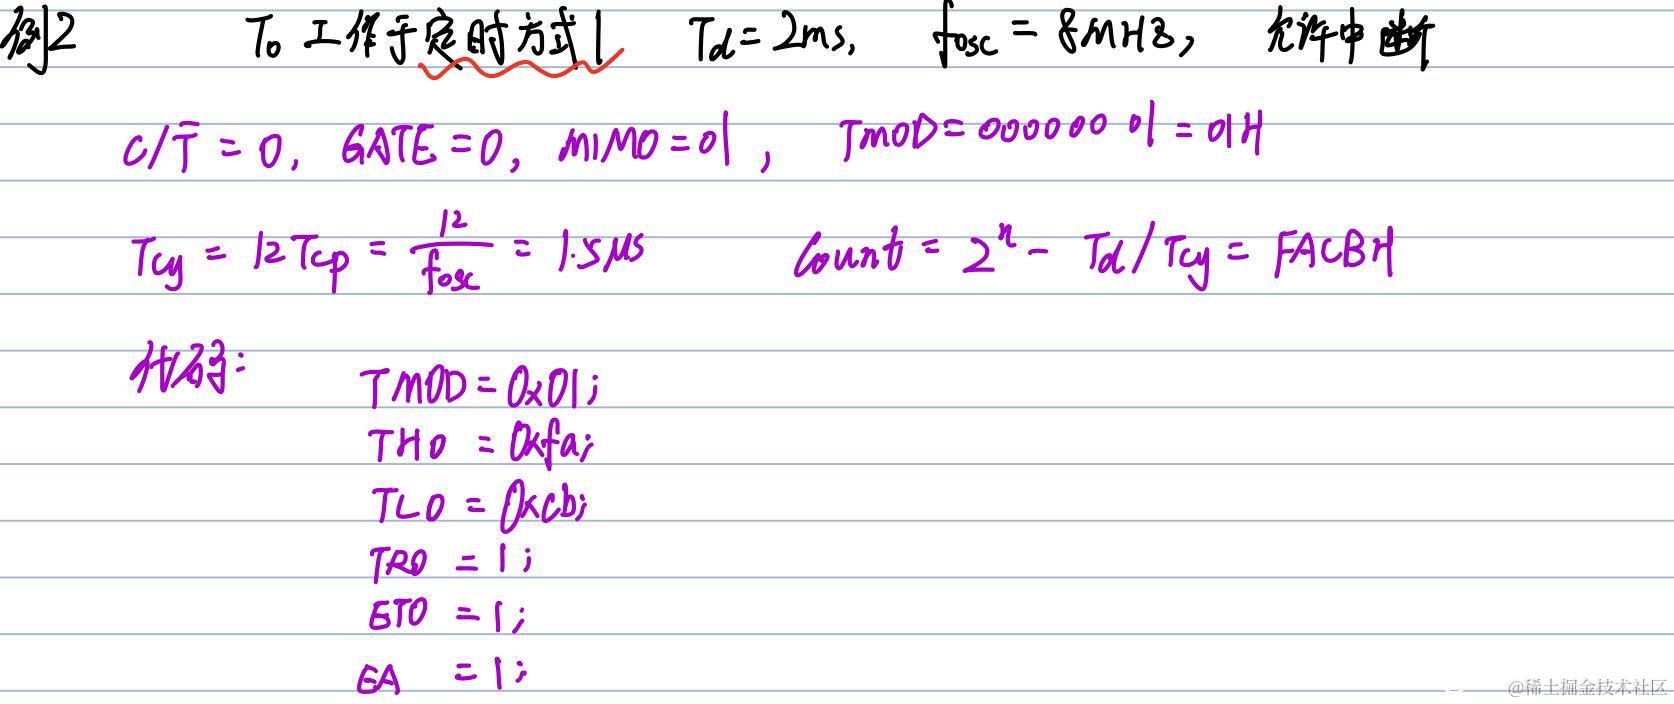 例2 T0 工作于定时方式1 Td = 2ms, fosc = 8MHz, 允许中断
C/T̅ = 0, GATE = 0, M1M0 = 01, TMOD = 00000001 = 01H
Tcy = 12Tcp = 12/fosc = 1.5μs Count = 2ⁿ - Td/Tcy = FACBH
代码:
TMOD = 0x01;
TH0 = 0xfa;
TL0 = 0xcb;
TR0 = 1;
ET0 = 1;
EA = 1;
@稀土掘金技术社区